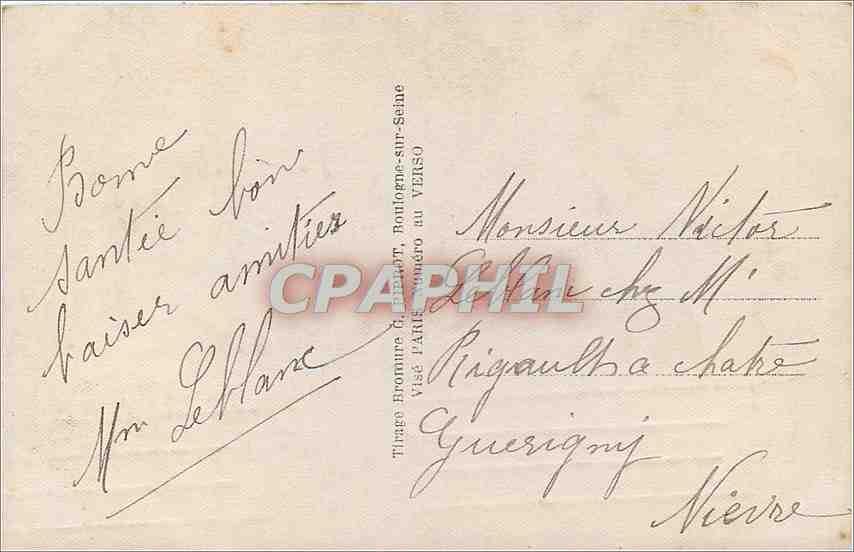 Bonne
santée bon
baiser amitier
Mm Leblanc
Tirage Bromure G. PIPROT, Boulogne-sur-Seine
Visé PARIS Numéro au VERSO
CPAPHIL
Monsieur Victor
Leblan chez Mr
Rigault a Chatre
Guerigny
Nievre